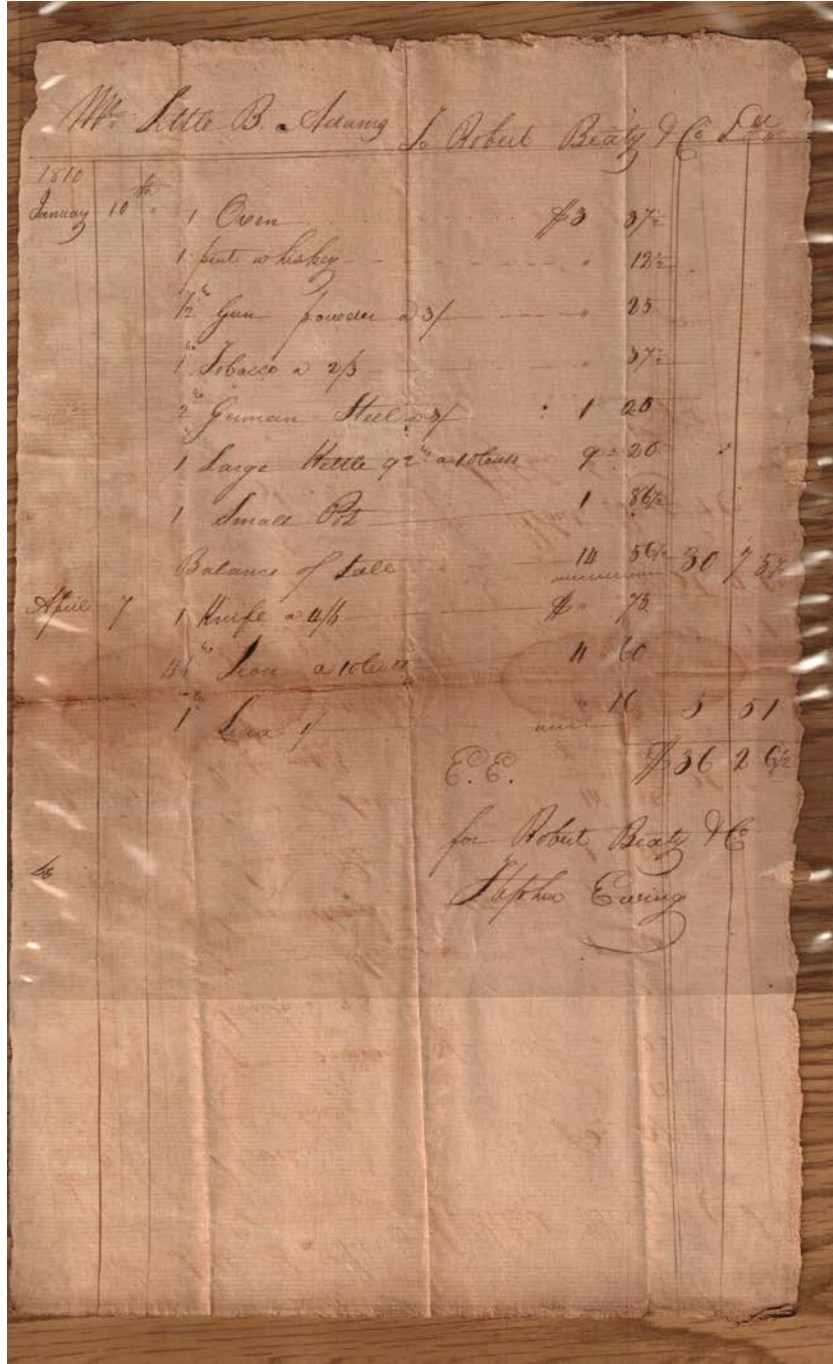 Mr. Little B. Adams To Robert Beaty & Co Dr
1810
January 10th 1 Oven $3 37½
1 pint whiskey " 12½
½ lb Gun powder a 3/ " 25
1 lb Tobacco a 2/3 37½
2 lb German Steel a 3/ 1 00
1 Large Kettle 92 lb a 10 Cents 9 20
1 Small Pot 1 86½
Balance of Sale 14 56½ 30 75½
April 7 1 Knife a 4/6 $ " 75
46 lb Iron a 10 Cents 4 60
1 lb Lead 1/ " 16 5 51
E.E. $36 26½
for Robert Beaty & Co
Stephen Ewing